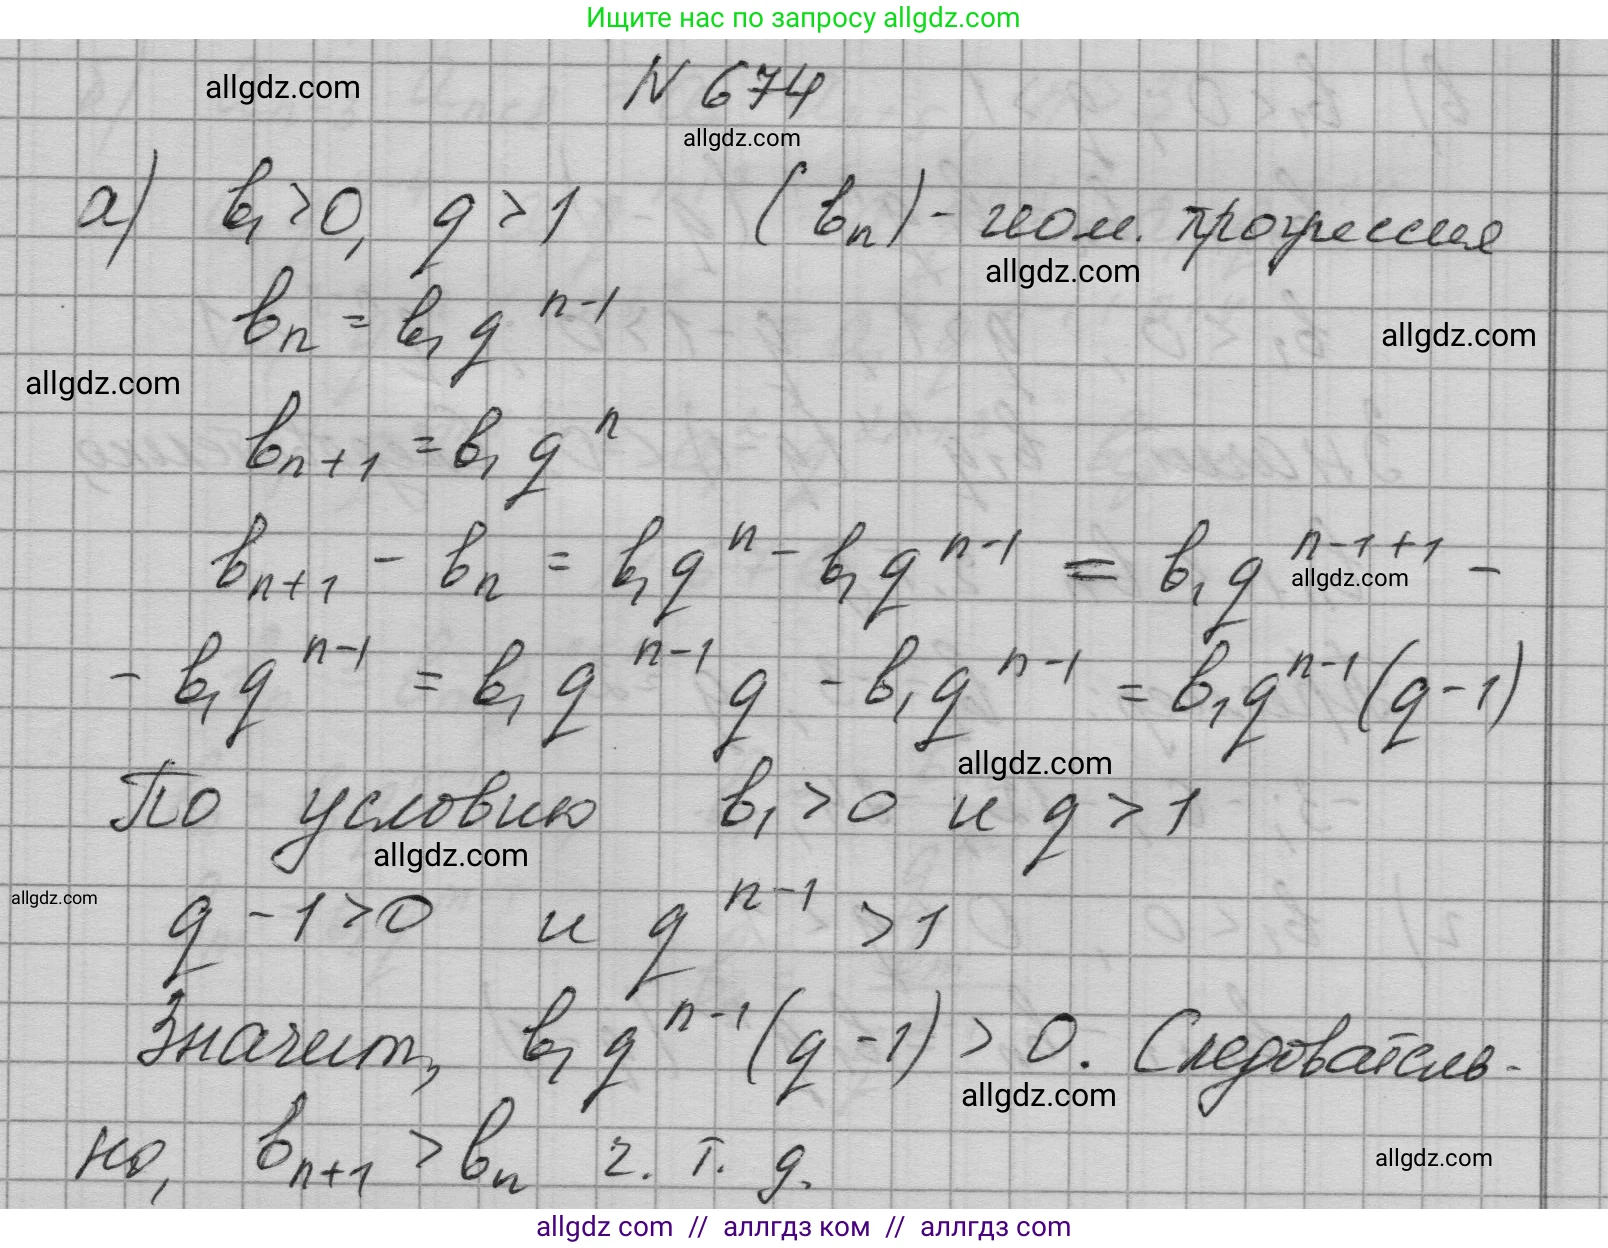 Ищите нас по запросу allgdz.com
allgdz.com
N 674
allgdz.com
а) b₁>0, q>1 (bₙ) - геом. прогрессия
allgdz.com
bₙ = b₁qⁿ⁻¹
allgdz.com
allgdz.com
bₙ₊₁ = b₁qⁿ
bₙ₊₁ - bₙ = b₁qⁿ - b₁qⁿ⁻¹ = b₁qⁿ⁻¹⁺¹ -
allgdz.com
- b₁qⁿ⁻¹ = b₁qⁿ⁻¹q - b₁qⁿ⁻¹ = b₁qⁿ⁻¹(q-1)
allgdz.com
По условию b₁>0 и q>1
allgdz.com
allgdz.com
q-1>0 и qⁿ⁻¹>1
Значит, b₁qⁿ⁻¹(q-1)>0. Следователь-
allgdz.com
но, bₙ₊₁>bₙ ч. т. д.
allgdz.com
allgdz com // аллгдз ком // аллгдз com